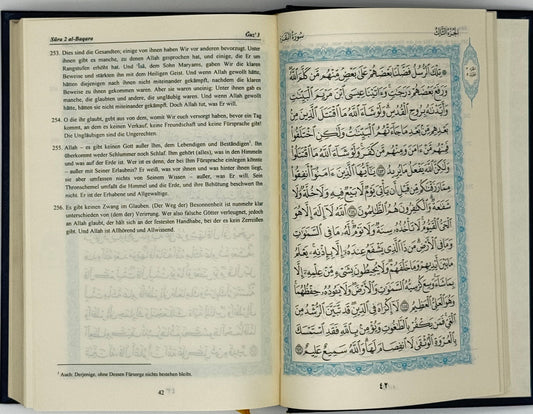 Sūra 2 al-Baqara
Ǧuz' 3
253. Dies sind die Gesandten; einige von ihnen haben Wir vor anderen bevorzugt. Unter
ihnen gibt es manche, zu denen Allah gesprochen hat, und einige, die Er um
Rangstufen erhöht hat. Und 'Īsā, dem Sohn Maryams, gaben Wir die klaren
Beweise und stärkten ihn mit dem Heiligen Geist. Und wenn Allah gewollt hätte,
hätten diejenigen nach ihnen nicht miteinander gekämpft, nachdem die klaren
Beweise zu ihnen gekommen waren. Aber sie waren uneinig: Unter ihnen gab es
manche, die glaubten und andere, die ungläubig waren. Und wenn Allah gewollt
hätte, hätten sie nicht miteinander gekämpft. Doch Allah tut, was Er will.
254. O die ihr glaubt, gebt aus von dem, womit Wir euch versorgt haben, bevor ein Tag
kommt, an dem es keinen Verkauf, keine Freundschaft und keine Fürsprache gibt!
Die Ungläubigen sind die Ungerechten.
255. Allah – es gibt keinen Gott außer Ihm, dem Lebendigen und Beständigen¹. Ihn
überkommt weder Schlummer noch Schlaf. Ihm gehört (alles), was in den Himmeln
und was auf der Erde ist. Wer ist es denn, der bei Ihm Fürsprache einlegen könnte
– außer mit Seiner Erlaubnis? Er weiß, was vor ihnen und was hinter ihnen liegt,
sie aber umfassen nichts von Seinem Wissen – außer, was Er will. Sein
Thronschemel umfaßt die Himmel und die Erde, und ihre Behütung beschwert Ihn
nicht. Er ist der Erhabene und Allgewaltige.
256. Es gibt keinen Zwang im Glauben. (Der Weg der) Besonnenheit ist nunmehr klar
unterschieden von (dem der) Verirrung. Wer also falsche Götter verleugnet, jedoch
an Allah glaubt, der hält sich an der festesten Handhabe, bei der es kein Zerreißen
gibt. Und Allah ist Allhörend und Allwissend.
¹ Auch: Derjenige, ohne Dessen Fürsorge nichts bestehen bleibt.
42
سورة البقرة
الجزء الثالث
تِلْكَ الرُّسُلُ فَضَّلْنَا بَعْضَهُمْ عَلَىٰ بَعْضٍ مِّنْهُم مَّن كَلَّمَ اللَّهُ
وَرَفَعَ بَعْضَهُمْ دَرَجَاتٍ وَءَاتَيْنَا عِيسَى ابْنَ مَرْيَمَ الْبَيِّنَاتِ
وَأَيَّدْنَاهُ بِرُوحِ الْقُدُسِ وَلَوْ شَاءَ اللَّهُ مَا اقْتَتَلَ الَّذِينَ مِنْ
بَعْدِهِم مِّن بَعْدِ مَا جَاءَتْهُمُ الْبَيِّنَاتُ وَلَٰكِنِ اخْتَلَفُوا
فَمِنْهُم مَّنْ ءَامَنَ وَمِنْهُم مَّن كَفَرَ وَلَوْ شَاءَ اللَّهُ مَا اقْتَتَلُوا
وَلَٰكِنَّ اللَّهَ يَفْعَلُ مَا يُرِيدُ ٢٥٣ يَا أَيُّهَا الَّذِينَ ءَامَنُوا أَنفِقُوا
مِمَّا رَزَقْنَاكُم مِّن قَبْلِ أَن يَأْتِيَ يَوْمٌ لَّا بَيْعٌ فِيهِ وَلَا خُلَّةٌ وَلَا
شَفَاعَةٌ وَالْكَافِرُونَ هُمُ الظَّالِمُونَ ٢٥٤ اللَّهُ لَا إِلَٰهَ إِلَّا هُوَ
الْحَيُّ الْقَيُّومُ لَا تَأْخُذُهُ سِنَةٌ وَلَا نَوْمٌ لَّهُ مَا فِي السَّمَاوَاتِ
وَمَا فِي الْأَرْضِ مَن ذَا الَّذِي يَشْفَعُ عِندَهُ إِلَّا بِإِذْنِهِ يَعْلَمُ
مَا بَيْنَ أَيْدِيهِمْ وَمَا خَلْفَهُمْ وَلَا يُحِيطُونَ بِشَيْءٍ مِّنْ عِلْمِهِ إِلَّا
بِمَا شَاءَ وَسِعَ كُرْسِيُّهُ السَّمَاوَاتِ وَالْأَرْضَ وَلَا يَئُودُهُ حِفْظُهُمَا
وَهُوَ الْعَلِيُّ الْعَظِيمُ ٢٥٥ لَا إِكْرَاهَ فِي الدِّينِ قَد تَّبَيَّنَ الرُّشْدُ مِنَ
الْغَيِّ فَمَن يَكْفُرْ بِالطَّاغُوتِ وَيُؤْمِن بِاللَّهِ فَقَدِ اسْتَمْسَكَ
بِالْعُرْوَةِ الْوُثْقَىٰ لَا انفِصَامَ لَهَا وَاللَّهُ سَمِيعٌ عَلِيمٌ ٢٥٦
٤٢